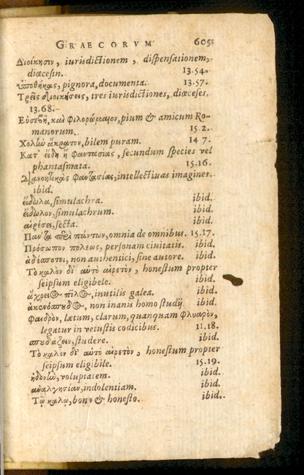 GRAECORVM 605
Διοίκησιν, iurisdictionem, dispensationem,
diœcesin. 13.54.
Ὑποθήκας, pignora, documenta. 13.57.
Τρεῖς διοικήσεις, tres iurisdictiones, diœceses.
13.68.
Εὐσεβῆ, καὶ φιλορώμαιον, pium & amicum Romanorum. 15.2.
Χολὴν ἄκρατον, bilem puram. 14 7.
Κατ' εἴδη ἢ φαντασίας, secundum species vel
phantasmata. 15.16.
Διανοητικὰς φαντασίας, intellectiuas imagines.
ibid.
εἴδωλα, simulachra. ibid.
εἴδωλον, simulachrum. ibid.
αἵρεσις, secta. ibid.
Πάντα περὶ πάντων, omnia de omnibus. 15.17.
Πρόσωπον πόλεως, personam ciuitatis. ibid.
ἀδέσποτοι, non authentici, sine autore. ibid.
Τὸ καλὸν δι' αὐτὸ αἱρετὸν, honestum propter
seipsum eligibele. ibid.
ἀχρεῖος πῖλος, inutilis galea. ibid.
ἀκενόσπουδος, non inani homo studij ibid.
Φαιδρὸν, lætum, clarum, quanquam φλυαρὸν,
legatur in vetustis codicibus. 11.18.
σπουδάζειν, studere. ibid.
Τὸ καλὸν δι' αὐτὸ αἱρετὸν, honestum propter
seipsum eligibile. 15.19.
ἡδονὴν, voluptatem. ibid.
ἀναλγησίαν, indolentiam. ibid.
Τῷ καλῷ, bono & honesto. ibid.